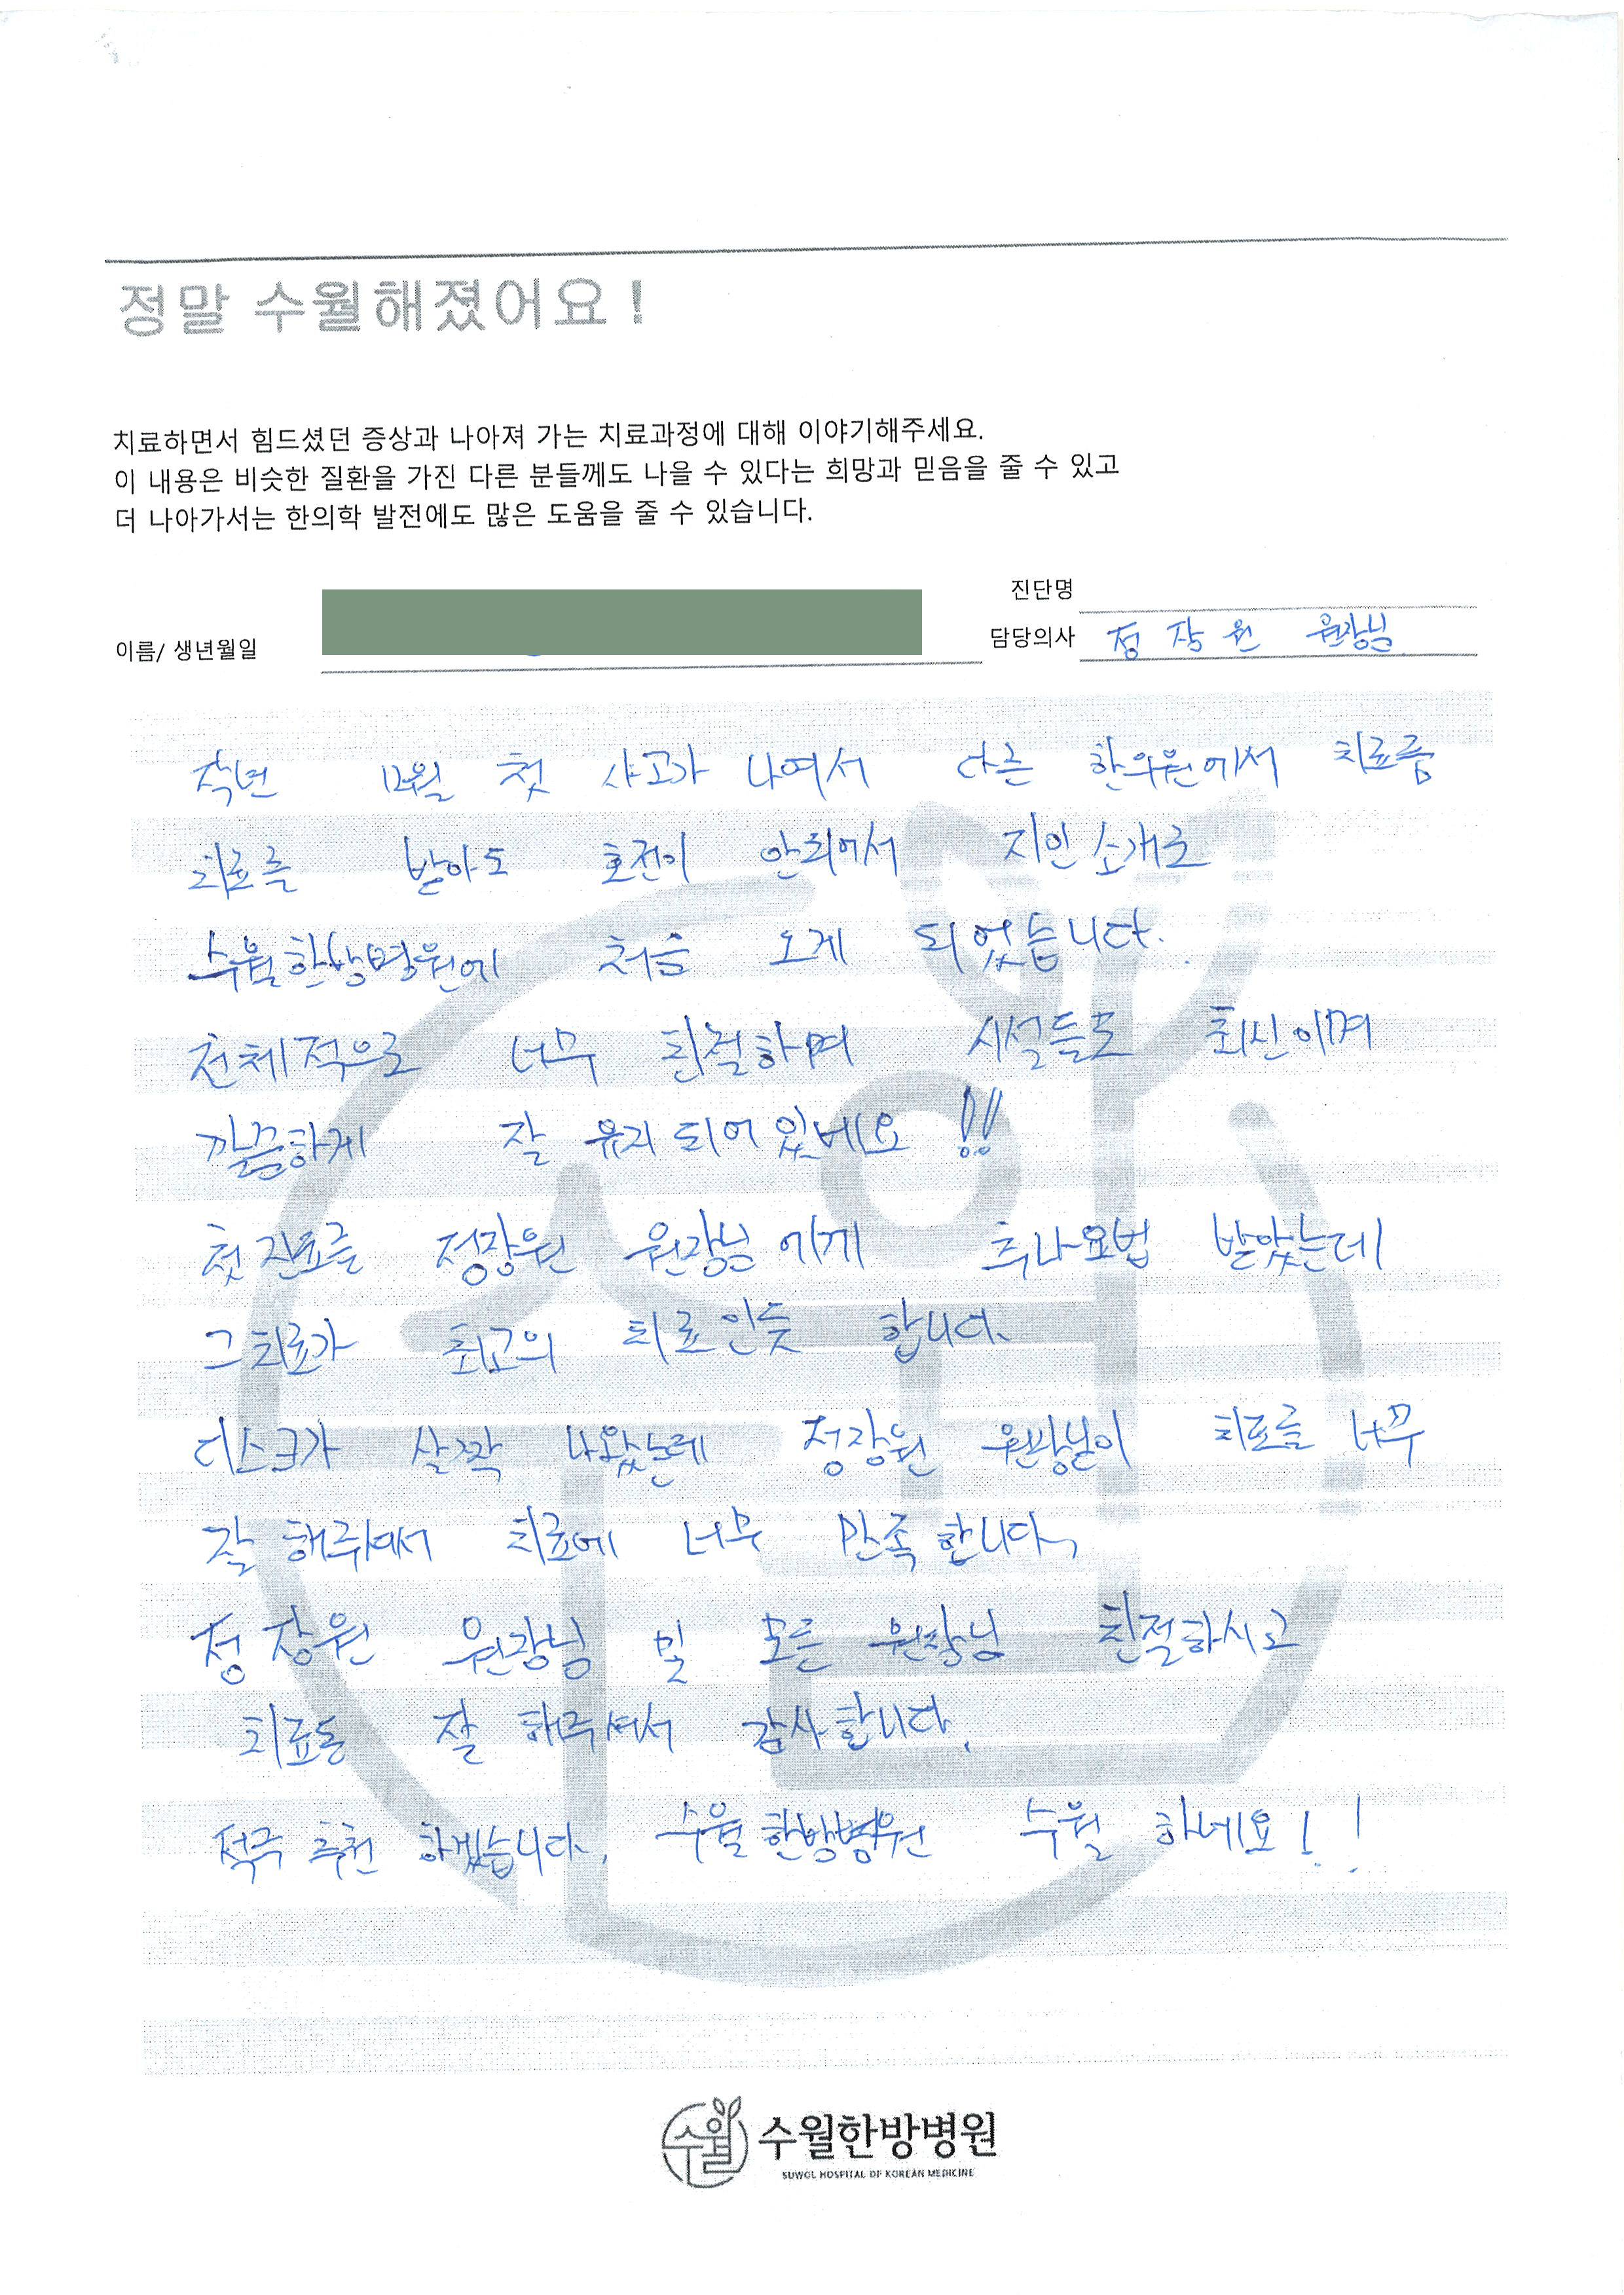 정말 수월해졌어요!
치료하면서 힘드셨던 증상과 나아져 가는 치료과정에 대해 이야기해주세요.
이 내용은 비슷한 질환을 가진 다른 분들께도 나을 수 있다는 희망과 믿음을 줄 수 있고
더 나아가서는 한의학 발전에도 많은 도움을 줄 수 있습니다.
진단명
이름/ 생년월일
담당의사 정장원 원장님
작년 12월 첫 사고가 나여서 다른 한의원에서 치료를
치료를 받아도 호전이 안되어서 지인 소개로
수월한방병원에 처음 오게 되었습니다.
전체적으로 너무 친절하며 시설들도 최신이며
깔끔하게 잘 유지 되어 있네요 !!
첫 진료를 정장원 원장님에게 추나요법 받았는데
그 치료가 최고의 치료인듯 합니다.
디스크가 살짝 나왔는데 정장원 원장님이 치료를 너무
잘 해주셔서 치료에 너무 만족합니다.
정장원 원장님 및 모든 원장님 친절하시고
치료도 잘 해주셔서 감사합니다.
적극 추천 하겠습니다. 수월한방병원 수월 하네요!!
수월
수월한방병원
SUWOL HOSPITAL OF KOREAN MEDICINE